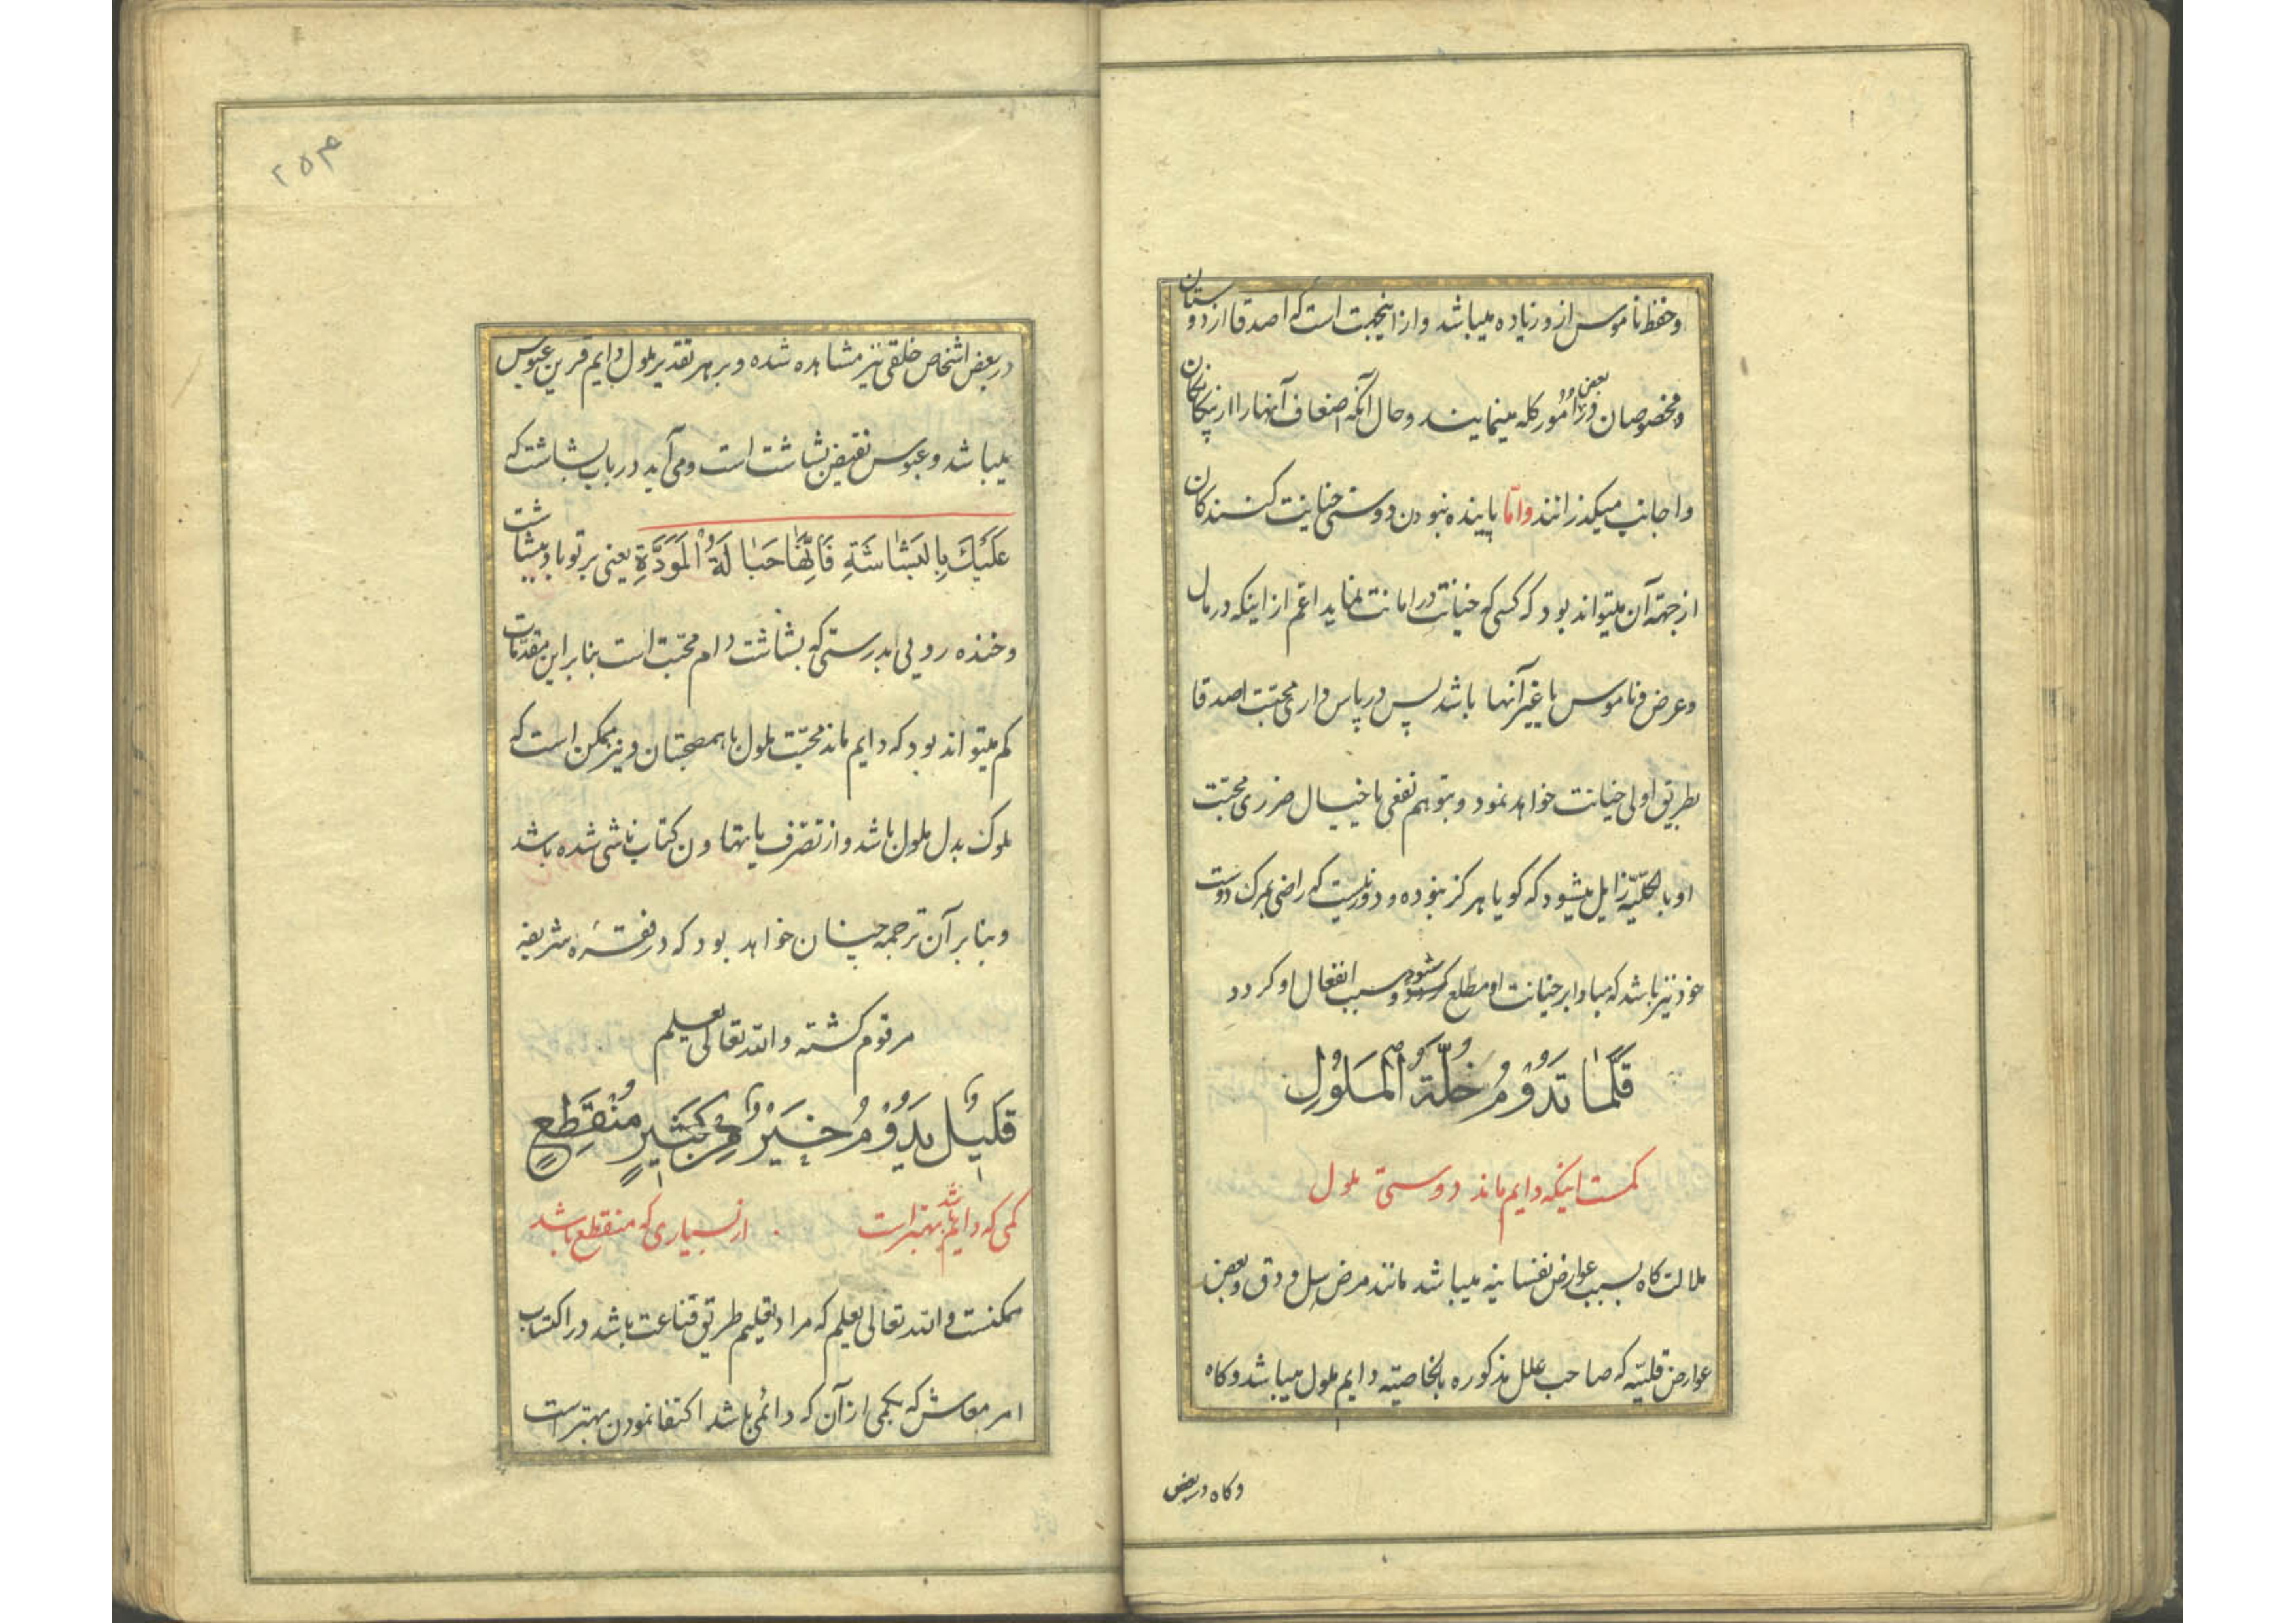 و حفظ ناموس از و زیاده میباشد و از اینجهت است که اصدقا از دوستان
و مخصوصان در بعض امور کله مینمایند و حال آنکه اضعاف آنها را از بیکانکان
و اجانب میکذرانند و امّا پاینده نبودن دوستی خیانت کنندکان
از جهة آن میتواند بود که کسی که خیانت در امانت نماید اعم از اینکه در مال
و عرض و ناموس یا غیر آنها باشد پس در پاس داری محبّت اصدقا
بطریق اولی خیانت خواهد نمود و بتوهم نفعی یا خیال ضرری محبّت
او بالکلّیّه زایل میشود که کویا هرکز نبوده و دور نیست که راضی بمرک دوست
خود نیز باشد که مبادا بر خیانت او مطّلع شود و سبب انفعال او کردد
قَلَّمَا تَدُوْمُ خُلَّةُ الْمَلُوْلِ
کمست اینکه دایم ماند دوستی ملول
ملالت کاه بسبب عوارض نفسانیه میباشد مانند مرض سل و دق و بعض
عوارض قلبیّه که صاحب علل مذکوره بالخاصیّه دایم ملول میباشد و کاه
و کاه در بعض
۲۵۴
در بعض اشخاص خلقی نیز مشاهده شده و بر هر تقدیر ملول دایم قرین عبوس
میباشد و عبوس نقیض بشاشت است و می آید در باب بشاشت که
عَلَیْكَ بِالْبَشَاشَةِ فَاِنَّهَا حَبَالَةُ الْمَوَدَّةِ یعنی بر تو باد ببشاشت
و خنده رویی بدرستی که بشاشت دام محبّت است بنابراین مقدّمات
کم میتواند بود که دایم ماند محبّت ملول با همصحبتان و نیز ممکن است که
ملوک بدل ملول باشد و از تصرّف یا تهاون کتاب ناشی شده باشد
و بنابر آن ترجمه چنان خواهد بود که در فقره شریفه
مرقوم کشته و الله تعالی یعلم
قَلِیْلٌ یَدُوْمُ خَیْرٌ مِنْ کَثِیْرٍ مُنْقَطِعٍ
کمی که دایم باشد بهتر است از بسیاری که منقطع باشد
ممکنست و الله تعالی یعلم که مراد تعلیم طریق قناعت باشد در اکتساب
امر معاش که بکمی از آن که دائمی باشد اکتفا نمودن بهتر است